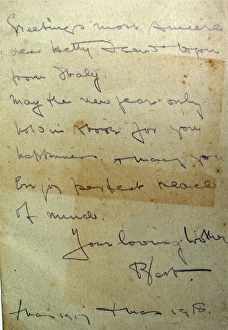 Greetings most sincere
dear Hetty I send to you
from Italy
May the new year only
hold in store for you
happiness & may you
Enjoy perfect peace
of mind.
Your loving brother
Bert.
Xmas 1917 Xmas 1918.